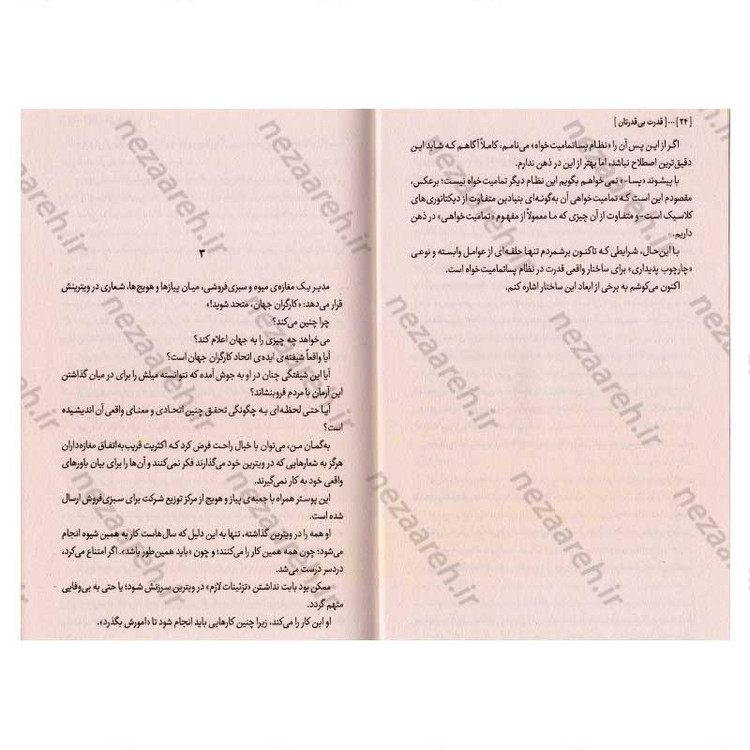 [ ۲۴ ] ... [ قدرت بی‌قدرتان ]
اگر از این پس آن را «نظام پساتمامیت‌خواه» می‌نامم، کاملاً آگاهم که شاید این
دقیق‌ترین اصطلاح نباشد، اما بهتر از این در ذهن ندارم.
با پیشوند «پسا-» نمی‌خواهم بگویم این نظام دیگر تمامیت‌خواه نیست؛ برعکس،
مقصودم این است که تمامیت‌خواهی آن به‌گونه‌ای بنیادین متفاوت از دیکتاتوری‌های
کلاسیک است- و متفاوت از آن چیزی که ما معمولاً از مفهوم «تمامیت‌خواهی» در ذهن
داریم.
با این‌حال، شرایطی که تاکنون برشمردم تنها حلقه‌ای از عوامل وابسته و نوعی
«چارچوب پدیداری» برای ساختار واقعی قدرت در نظام پساتمامیت‌خواه است.
اکنون می‌کوشم به برخی از ابعاد این ساختار اشاره کنم.
۳
مدیر یک مغازه‌ی میوه و سبزی‌فروشی، میان پیازها و هویج‌ها، شعاری در ویترینش
قرار می‌دهد: «کارگران جهان، متحد شوید!»
چرا چنین می‌کند؟
می‌خواهد چه چیزی را به جهان اعلام کند؟
آیا واقعاً شیفته‌ی ایده‌ی اتحاد کارگران جهان است؟
آیا این شیفتگی چنان در او به جوش آمده که نتوانسته میلش را برای در میان گذاشتن
این آرمان با مردم فروبنشاند؟
آیا حتی لحظه‌ای به چگونگی تحقق چنین اتحادی و معنای واقعی آن اندیشیده
است؟
به‌گمان من، می‌توان با خیال راحت فرض کرد که اکثریت قریب‌به‌اتفاق مغازه‌داران
هرگز به شعارهایی که در ویترین خود می‌گذارند فکر نمی‌کنند و آن‌ها را برای بیان باورهای
واقعی خود به کار نمی‌گیرند.
این پوستر همراه با جعبه‌ی پیاز و هویج از مرکز توزیع شرکت برای سبزی‌فروش ارسال
شده است.
او همه را در ویترین گذاشته، تنها به این دلیل که سال‌هاست کار به همین شیوه انجام
می‌شود؛ چون همه همین کار را می‌کنند؛ و چون «باید همین‌طور باشد». اگر امتناع می‌کرد،
دردسر درست می‌شد.
ممکن بود بابت نداشتن «تزئینات لازم» در ویترین سرزنش شود؛ یا حتی به بی‌وفایی
متهم گردد.
او این کار را می‌کند، زیرا چنین کارهایی باید انجام شود تا «امورش بگذرد».
nezaareh.ir
nezaareh.ir
nezaareh.ir
nezaareh.ir
nezaareh.ir
nezaareh.ir
nezaareh.ir
nezaareh.ir